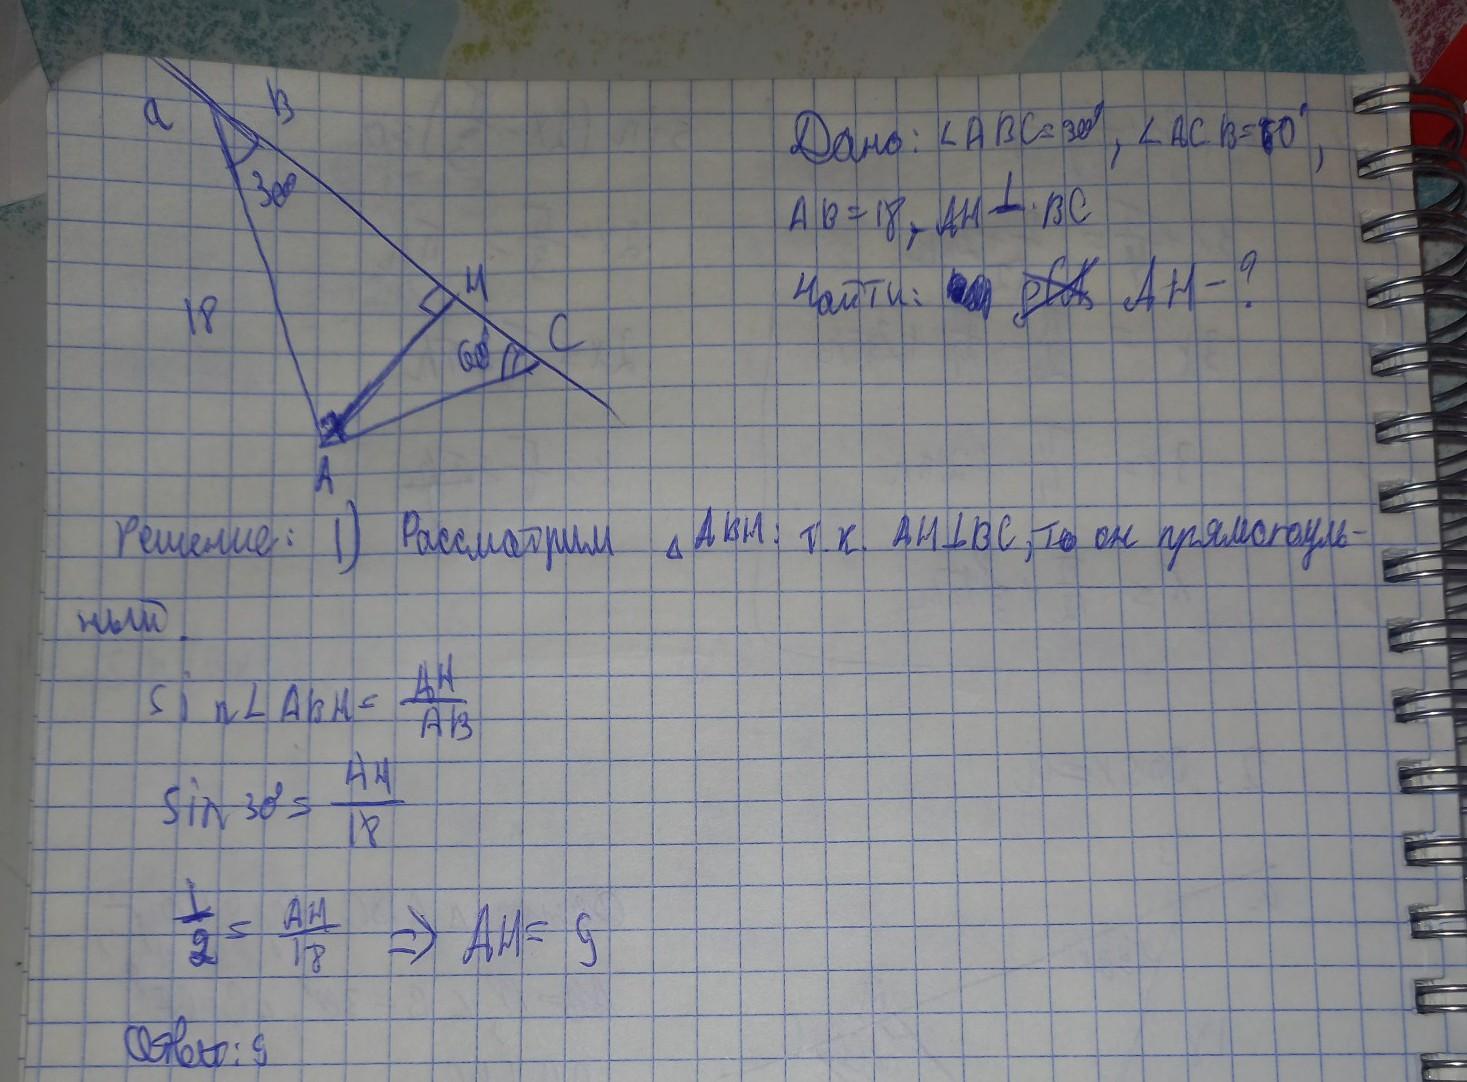 a B
30°
18
H
60° C
A
Дано: ∠ABC=30°, ∠ACB=60°,
AB=18, AH⊥BC
Найти: AH-?
Решение: 1) Рассмотрим △ABH: т.к. AH⊥BC, то он прямоуголь-
ный.
Sin∠ABH= AH/AB
Sin30°= AH/18
1/2 = AH/18 ⇒ AH= 9
Ответ: 9